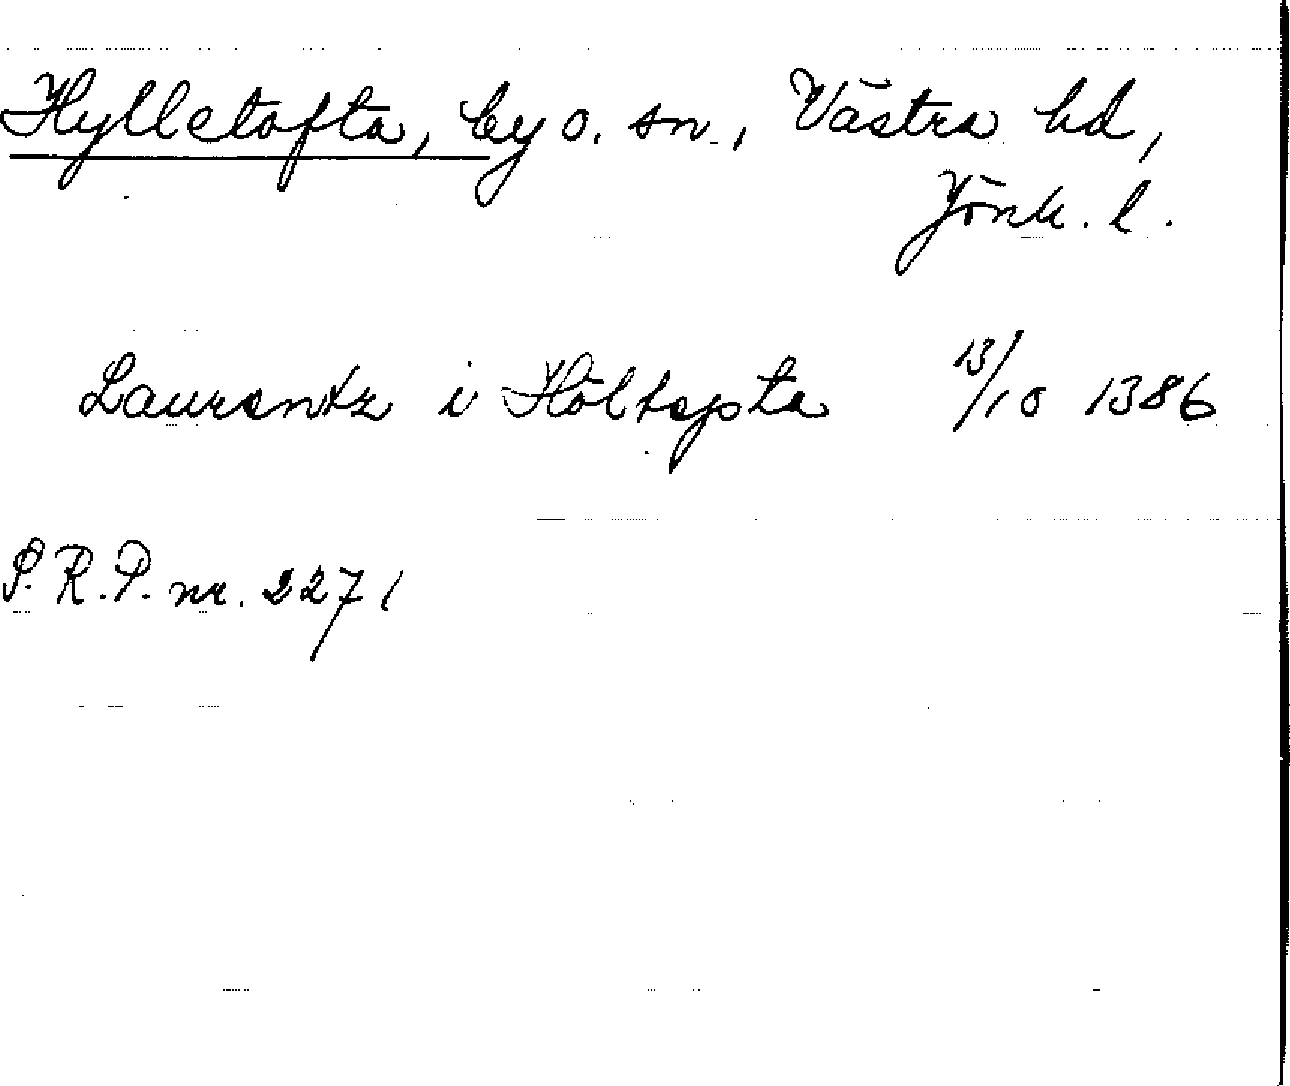 Hylletofta, by o. sn., Västra hd,
Jönk. l.
Laurentz i Höltopta 13/10 1386
S.R.P. nr. 2271